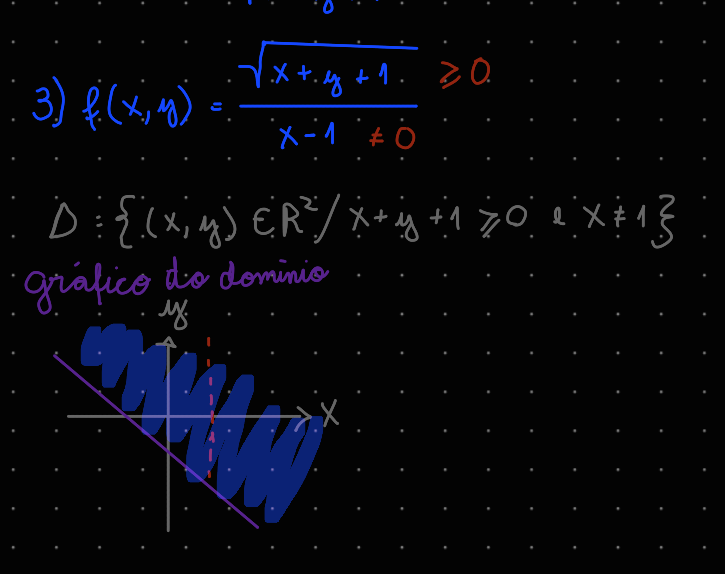 3) f(x,y) = √(x+y+1) / (x-1) ≥ 0 ≠ 0
D = {(x,y) ∈ ℝ² / x+y+1 ≥ 0 e x ≠ 1}
gráfico do domínio
y
x